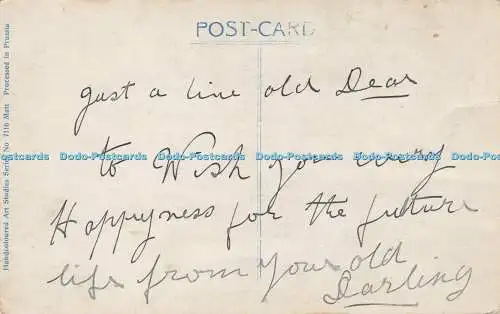 POST-CARD
Just a line old Dear
to Wish you every
Happyness for the future
life from your old
Darling
Handcoloured Art Studies Series No 7116 Matt Processed in Prussia
Dodo-Postcards Dodo-Postcards Dodo-Postcards Dodo-Postcards Dodo-Postcards